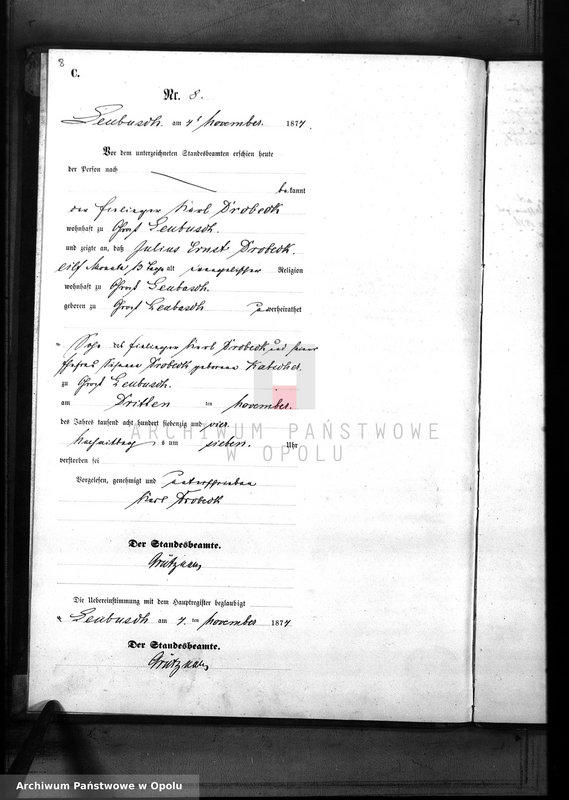 8
C.
Nr. 8.
Leubusch. am 4t November. 1874.
Vor dem unterzeichneten Standesbeamten erschien heute
der Person nach
bekannt
der Karl Drobeck
wohnhaft zu Groß Leubusch.
und zeigte an, daß Julius Ernst Drobeck.
eilf Monate 13 Tage alt evangelischer Religion
wohnhaft zu Groß Leubusch.
geboren zu Groß Leubusch unverheirathet
Sohn des Karl Drobeck und seiner
Ehefrau Drobeck geborene
zu Groß Leubusch.
am Dritten ten November.
des Jahres tausend acht hundert siebenzig und vier
Nachmittags um sieben. Uhr
verstorben sei
Vorgelesen, genehmigt und unterschrieben
Karl Drobeck
Der Standesbeamte.
Die Uebereinstimmung mit dem Hauptregister beglaubigt
Leubusch am 4. ten November 1874
Der Standesbeamte.
ARCHIWUM PAŃSTWOWE
W OPOLU
Archiwum Państwowe w Opolu